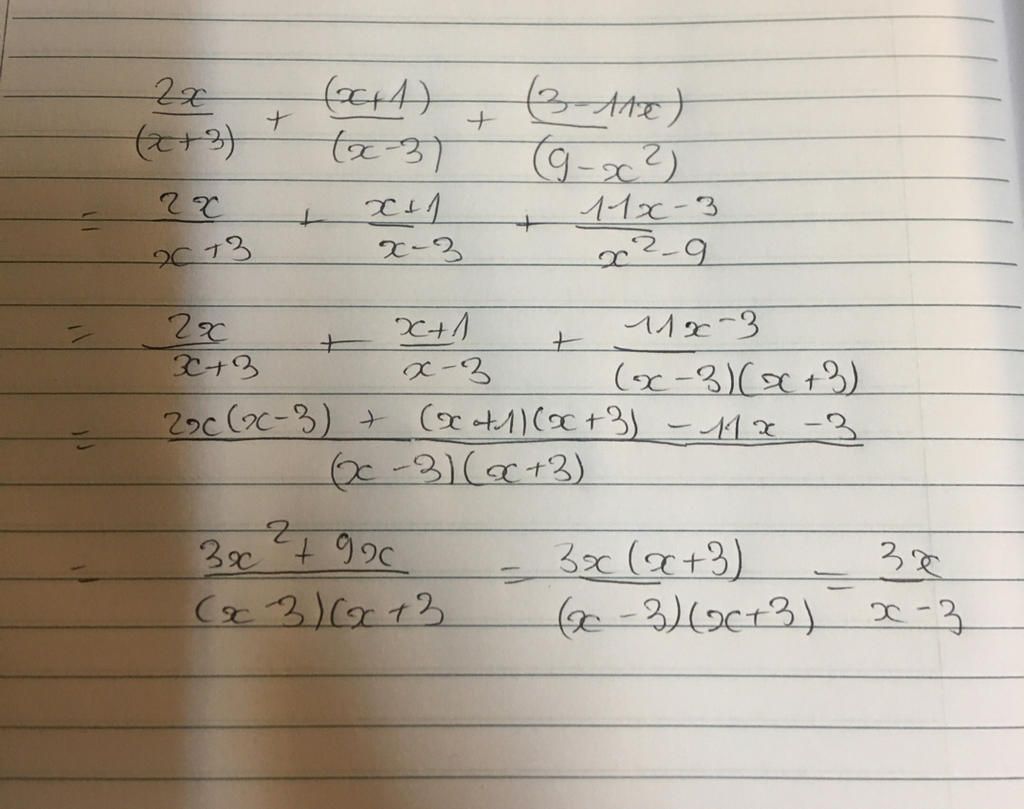 2x/(x+3) + (x+1)/(x-3) + (3-11x)/(9-x²)
= 2x/x+3 + x+1/x-3 + 11x-3/x²-9
= 2x/x+3 + x+1/x-3 + 11x-3/(x-3)(x+3)
= 2x(x-3) + (x+1)(x+3) - 11x - 3/(x-3)(x+3)
= 3x² + 9x/(x-3)(x+3 = 3x(x+3)/(x-3)(x+3) = 3x/x-3